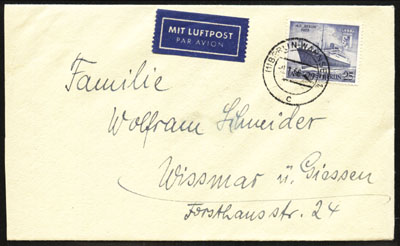 MIT LUFTPOST
PAR AVION
BERLIN 25
Familie
Wolfram Schneider
Wissmar ü. Giessen
Forsthausstr. 24